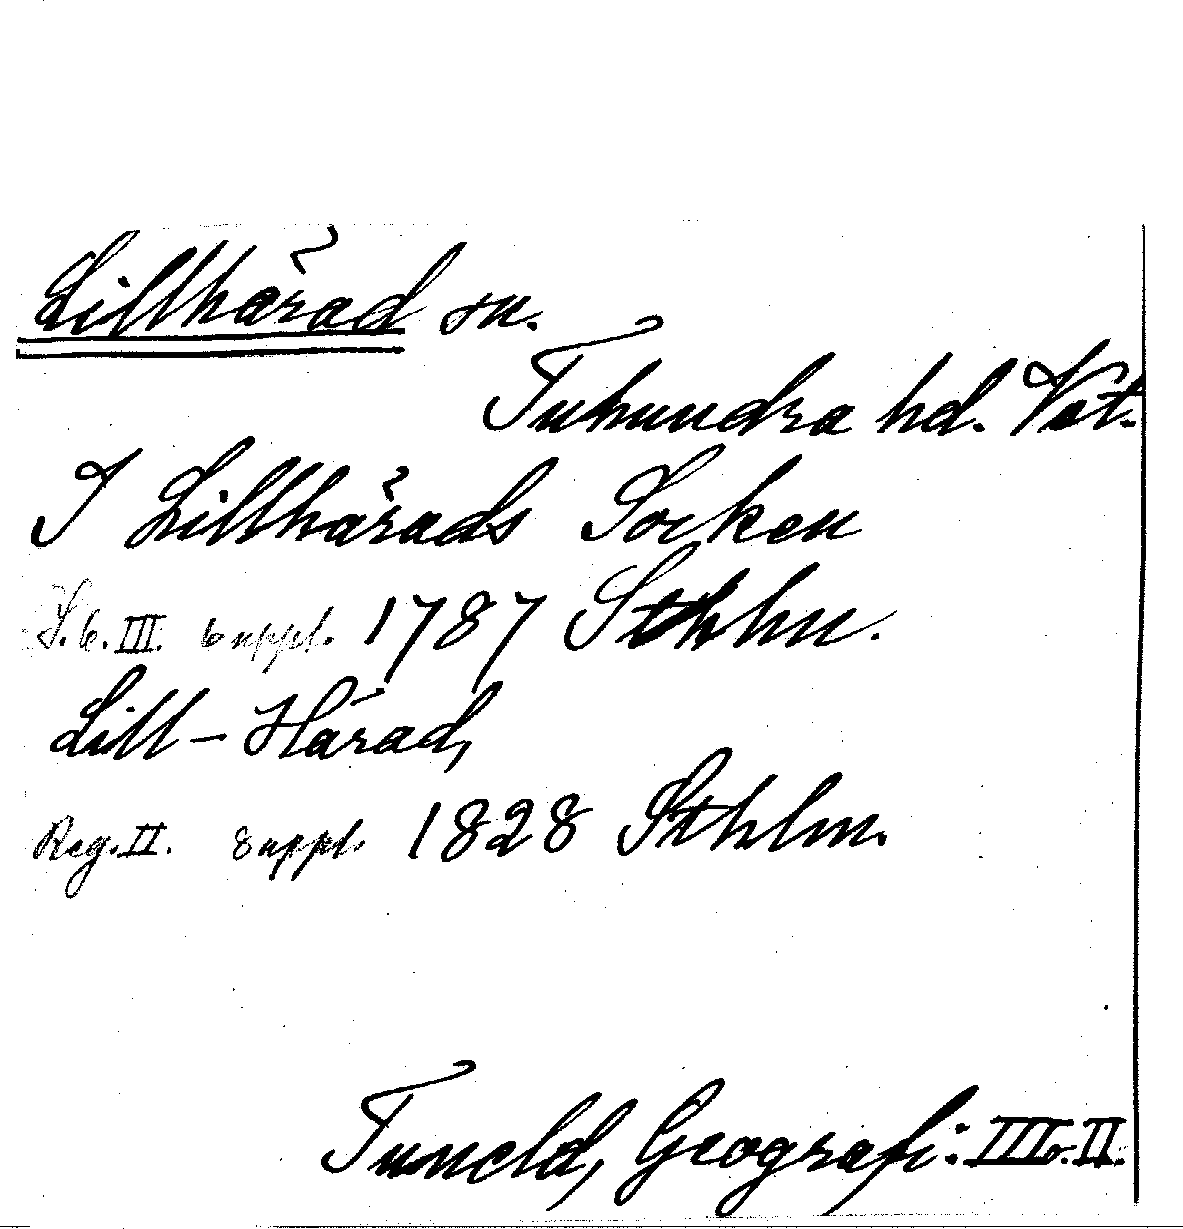 Lillhärad sn.
Tuhundra hd. Vst.
I Lillhärads Socken
S. 6. III. 6 uppl. 1787 Sthlm.
Lill-Härad,
Reg. II. 8 uppl. 1828 Sthlm.
Tuneld, Geografi: III o. II.